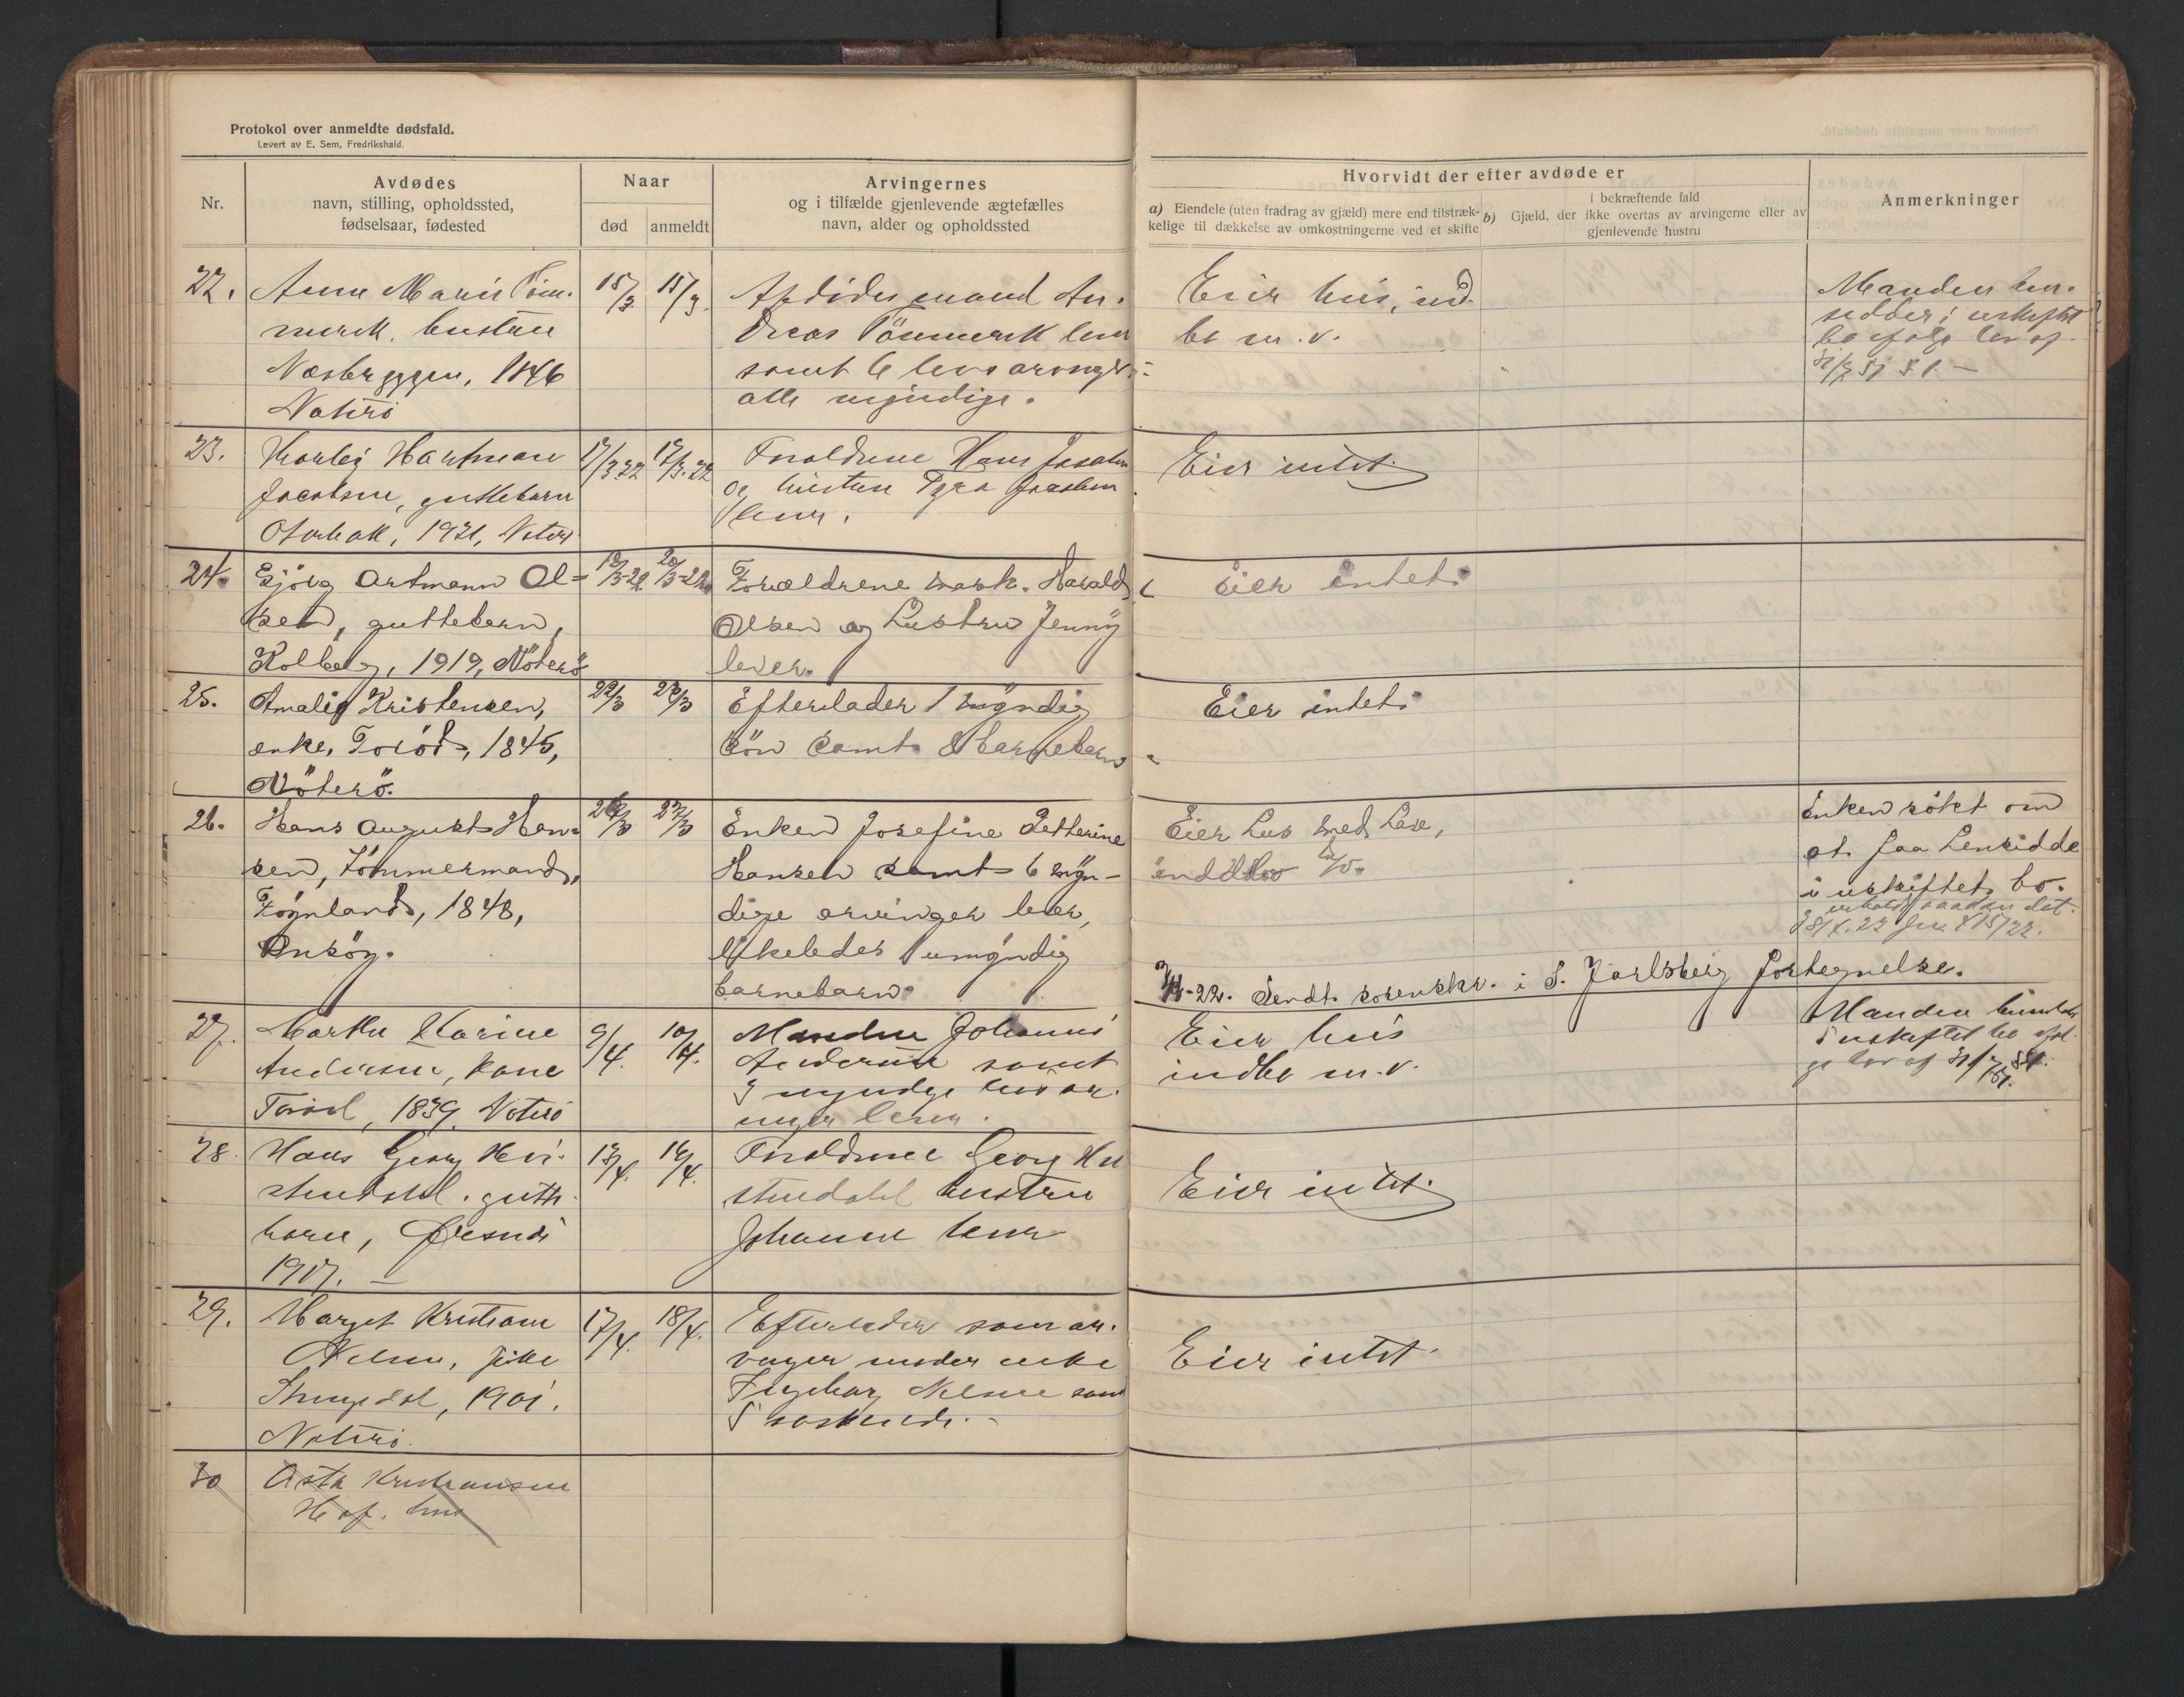 Protokol over anmeldte dødsfald.
Levert av E. Sem, Fredrikshald.
Nr.
Avdødes
navn, stilling, opholdssted,
fødselsaar, fødested
Naar
død
anmeldt
Arvingernes
og i tilfælde gjenlevende ægtefælles
navn, alder og opholdssted
Hvorvidt der efter avdøde er
a) Eiendele (uten fradrag av gjæld) mere end tilstræk-
kelige til dækkelse av omkostningerne ved et skifte
i bekræftende fald
b) Gjæld, der ikke overtas av arvingerne eller av
gjenlevende hustru
Anmerkninger
22.
Anne Marie Töm-
merek. hustru
Næsbryggen, 1846
Nøterö
15/3
15/3
Afdödes mand An-
dreas Tömmerek lever
samt 6 livsarvinger
alle myndige.
Eier hus, ind-
bo m.v.
Manden hen-
sidder i uskiftet
bo ifølge lov af
31/7 51 § 1. —
23.
Thorleif Hartman
Jacobsen, guttebarn
1921, Nøterö
17/3-22
17/3-22
Forældrene Hans Jacobsen
og hustru Jacobsen
lever.
Eier intet.
24.
Artmann Ol-
sen, guttebarn,
Kolberg, 1919, Nöterö
19/3-22
20/3-22
Forældrene mask. Harald
Olsen og hustru Jenny
lever.
Eier intet.
25.
Amalie Kristensen,
enke, Torød, 1845,
Nöterö.
22/3
23/3
Efterlader 1 myndig
sön samt 8 barnebarn
Eier intet.
26.
Hans August Han-
sen, tömmermand,
Föynland, 1848,
Ensöy.
26/3
27/3
Enken Josefine Petterine
Hansen samt 6 myn-
dige arvinger lever,
likeledes 1 umyndig
barnebarn.
Eier hus med have,
indbo m/v.
Enken søkt om
at faa hensidde
i uskiftet bo.
7/4-22. Sendt sorenskr. i S. Jarlsberg fortegnelse.
27.
Marthe Karine
Andersen, kone
Torød, 1839, Nøterö
9/4.
10/4.
Manden Johannes
Andersen samt
5 myndige livsar-
vinger lever.
Eier hus
indbo m.v.
Manden hensidder
i uskiftet bo iføl-
ge lov af 31/7 51.
28.
Hans Georg Hvi-
stendahl. gutte-
barn, Øresnes
1917. —
13/4.
14/4.
Forældrene Georg Hvi-
stendahl hustru
Johanne lever
Eier intet.
29.
Margit Kristiane
Nilsen, pike
1901.
Nøterö.
17/4.
18/4.
Efterlader som ar-
vinger moder enke
Ingeborg Nilsen samt
5 søskende. -
Eier intet.
30
Asta Kristiansen